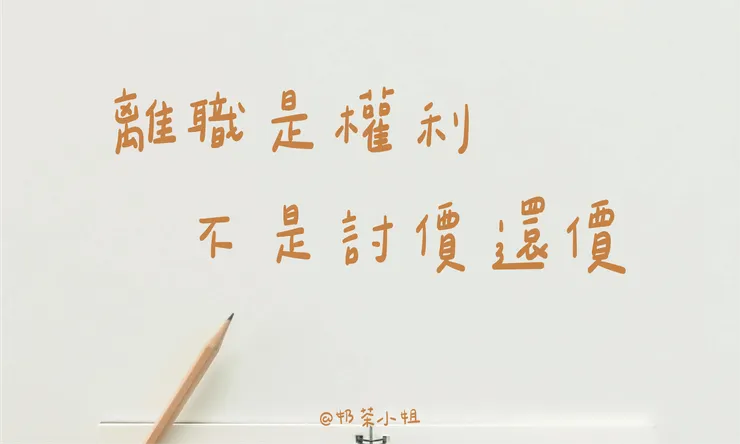 離職是權利
不是討價還價
@奶茶小姐